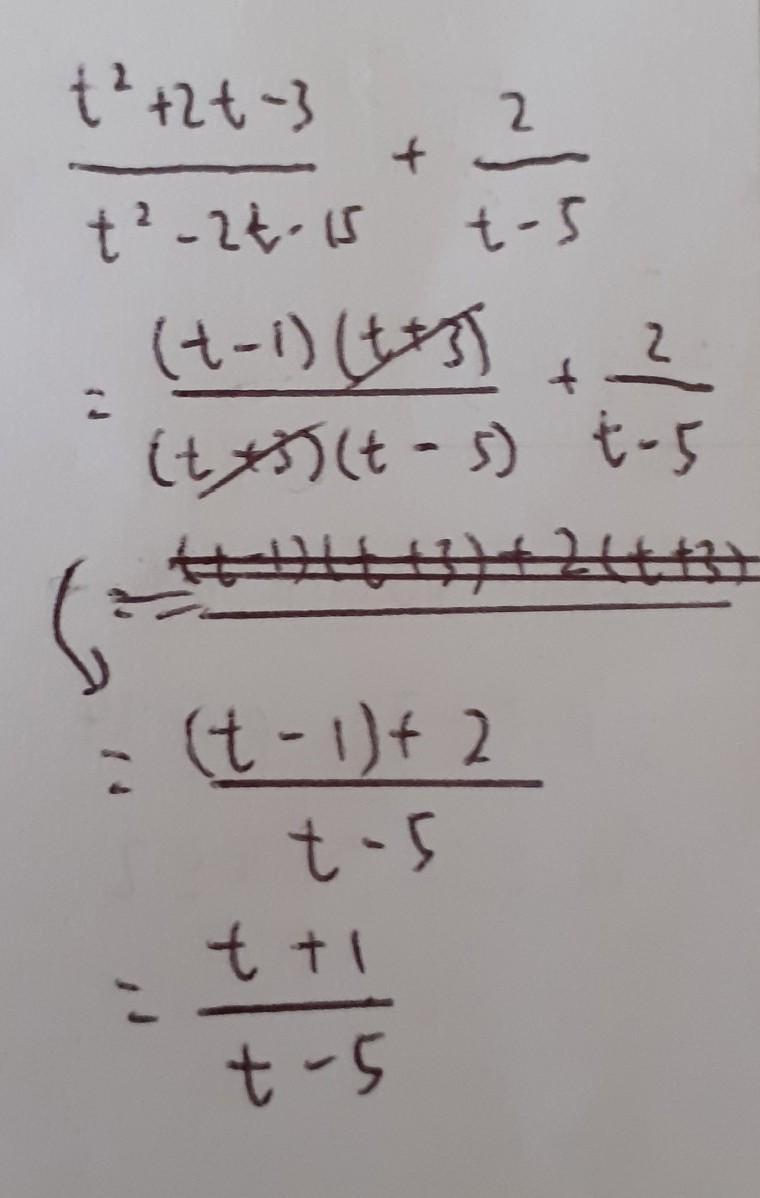 t² + 2t - 3 / t² - 2t - 15 + 2 / t - 5
= (t - 1)(t + 3) / (t + 3)(t - 5) + 2 / t - 5
= (t - 1)(t + 3) + 2(t + 3)
= (t - 1) + 2 / t - 5
= t + 1 / t - 5